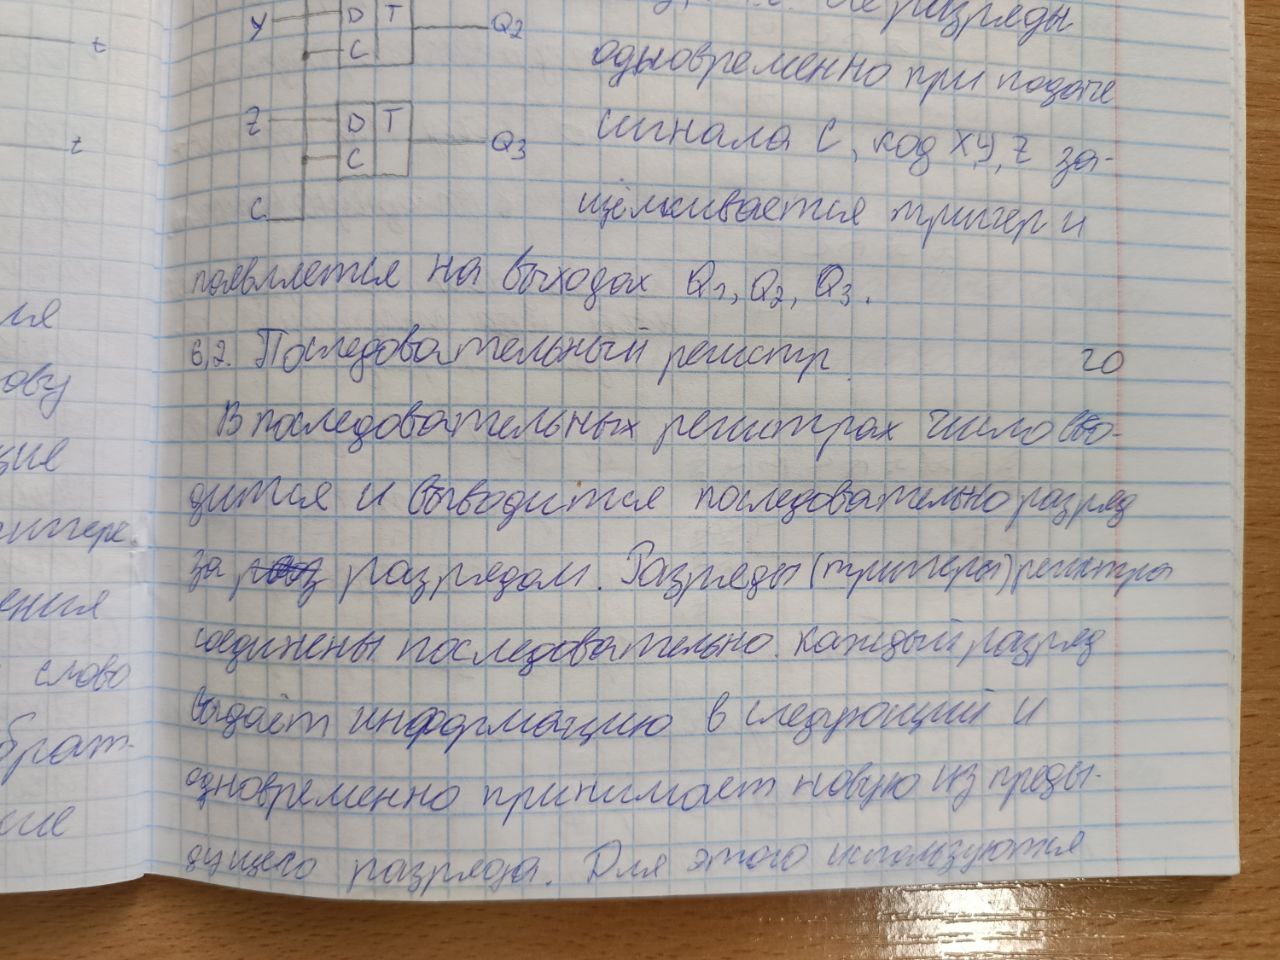 t
t
ля
ову
щие
ения
слово
брат-
кие
У D T Q2
C
Z D T Q3
C
C
разряды
одновременно при подаче
сигнала С, код ХУ, Z за-
щёлкивается тригер и
появляется на выходах Q1, Q2, Q3.
6,2. Последовательный регистр 20
В последовательных регистрах число вво-
дится и выводится последовательно разряд
за разрядом. Разряды (тригеры) регистра
соединены последовательно. Каждый разряд
выдаёт информацию в следующий и
одновременно принимает новую из преды-
дущего разряда. Для этого используются